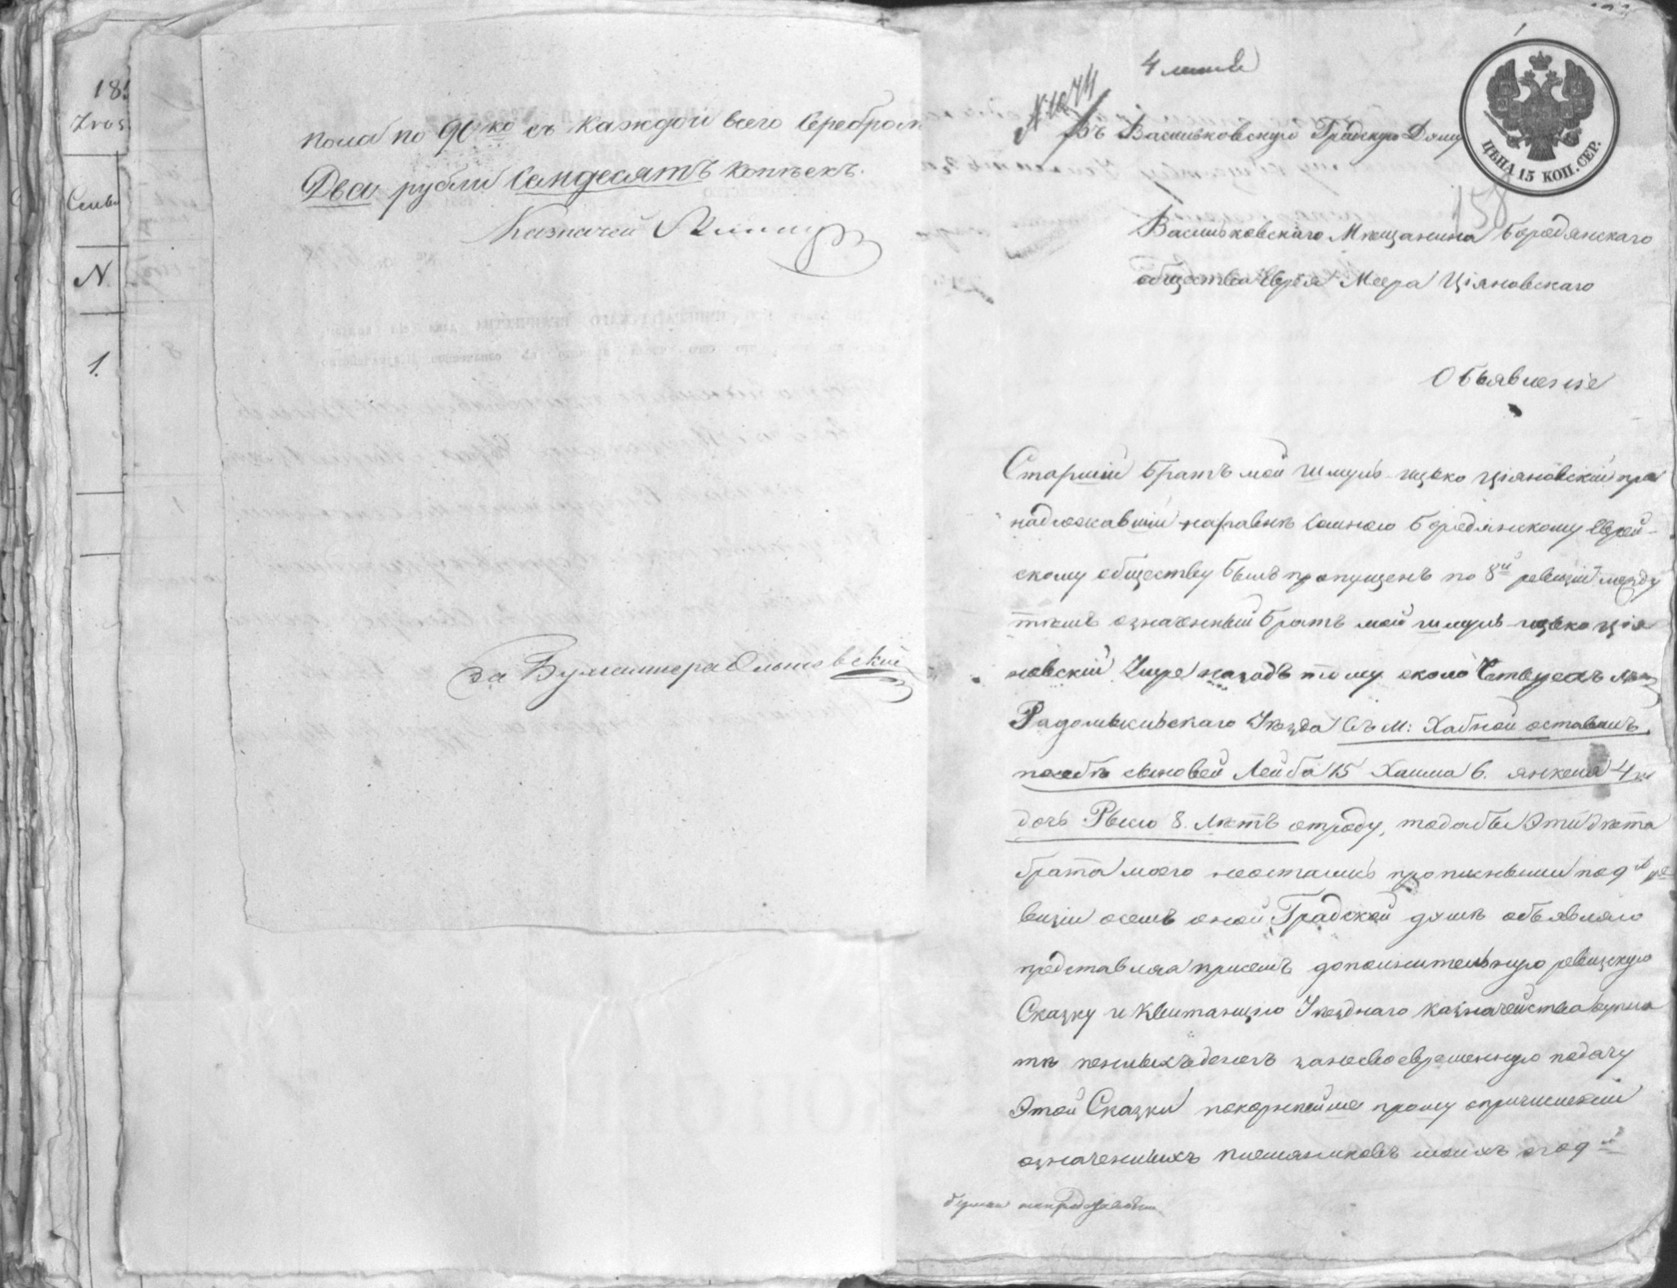 пола по 90 ко съ каждой всего серебром
Два рубли семдесятъ копѣекъ.
Казначей
За Бухгалтера Ольшевский
185
Сем
N
1.
4 июля
№ 1074
Въ Васильковскую Градскую Думу
ЦѢНА 15 КОП. СЕР.
158
Васильковскаго Мещанина Бородянскаго
общества Еврея Меера Ціяновскаго
Объявленіе
Старшій братъ мой Шмуль-Ицько Ціяновскій при
надлежавшій наравнѣ со мною Бородянскому Еврей-
скому обществу былъ пропущенъ по 8й ревизіи между
тѣмъ означенный братъ мой Шмуль-Ицько Ція
новскій умре назадъ тому около четырехъ лѣтъ
Радомысльскаго Уѣзда въ м: Хабной оставивъ
по себѣ сыновей Лейба 15 Хаима 6. Янкеля 4 и
дочь Рысю 8 лѣтъ отроду, то дабы эти дѣти
брата моего неостались прописными по 9й ре
визіи о семъ оной Градской думѣ объявляю
представляя присемъ дополнительную ревизскую
Сказку и Квитанцію Уѣзднаго Казначейства о упла
тѣ пенныхъ денегъ за несвоевременную подачу
этой Сказки покорнѣйше прошу о причисленіи
означенныхъ племянниковъ моихъ по 9й